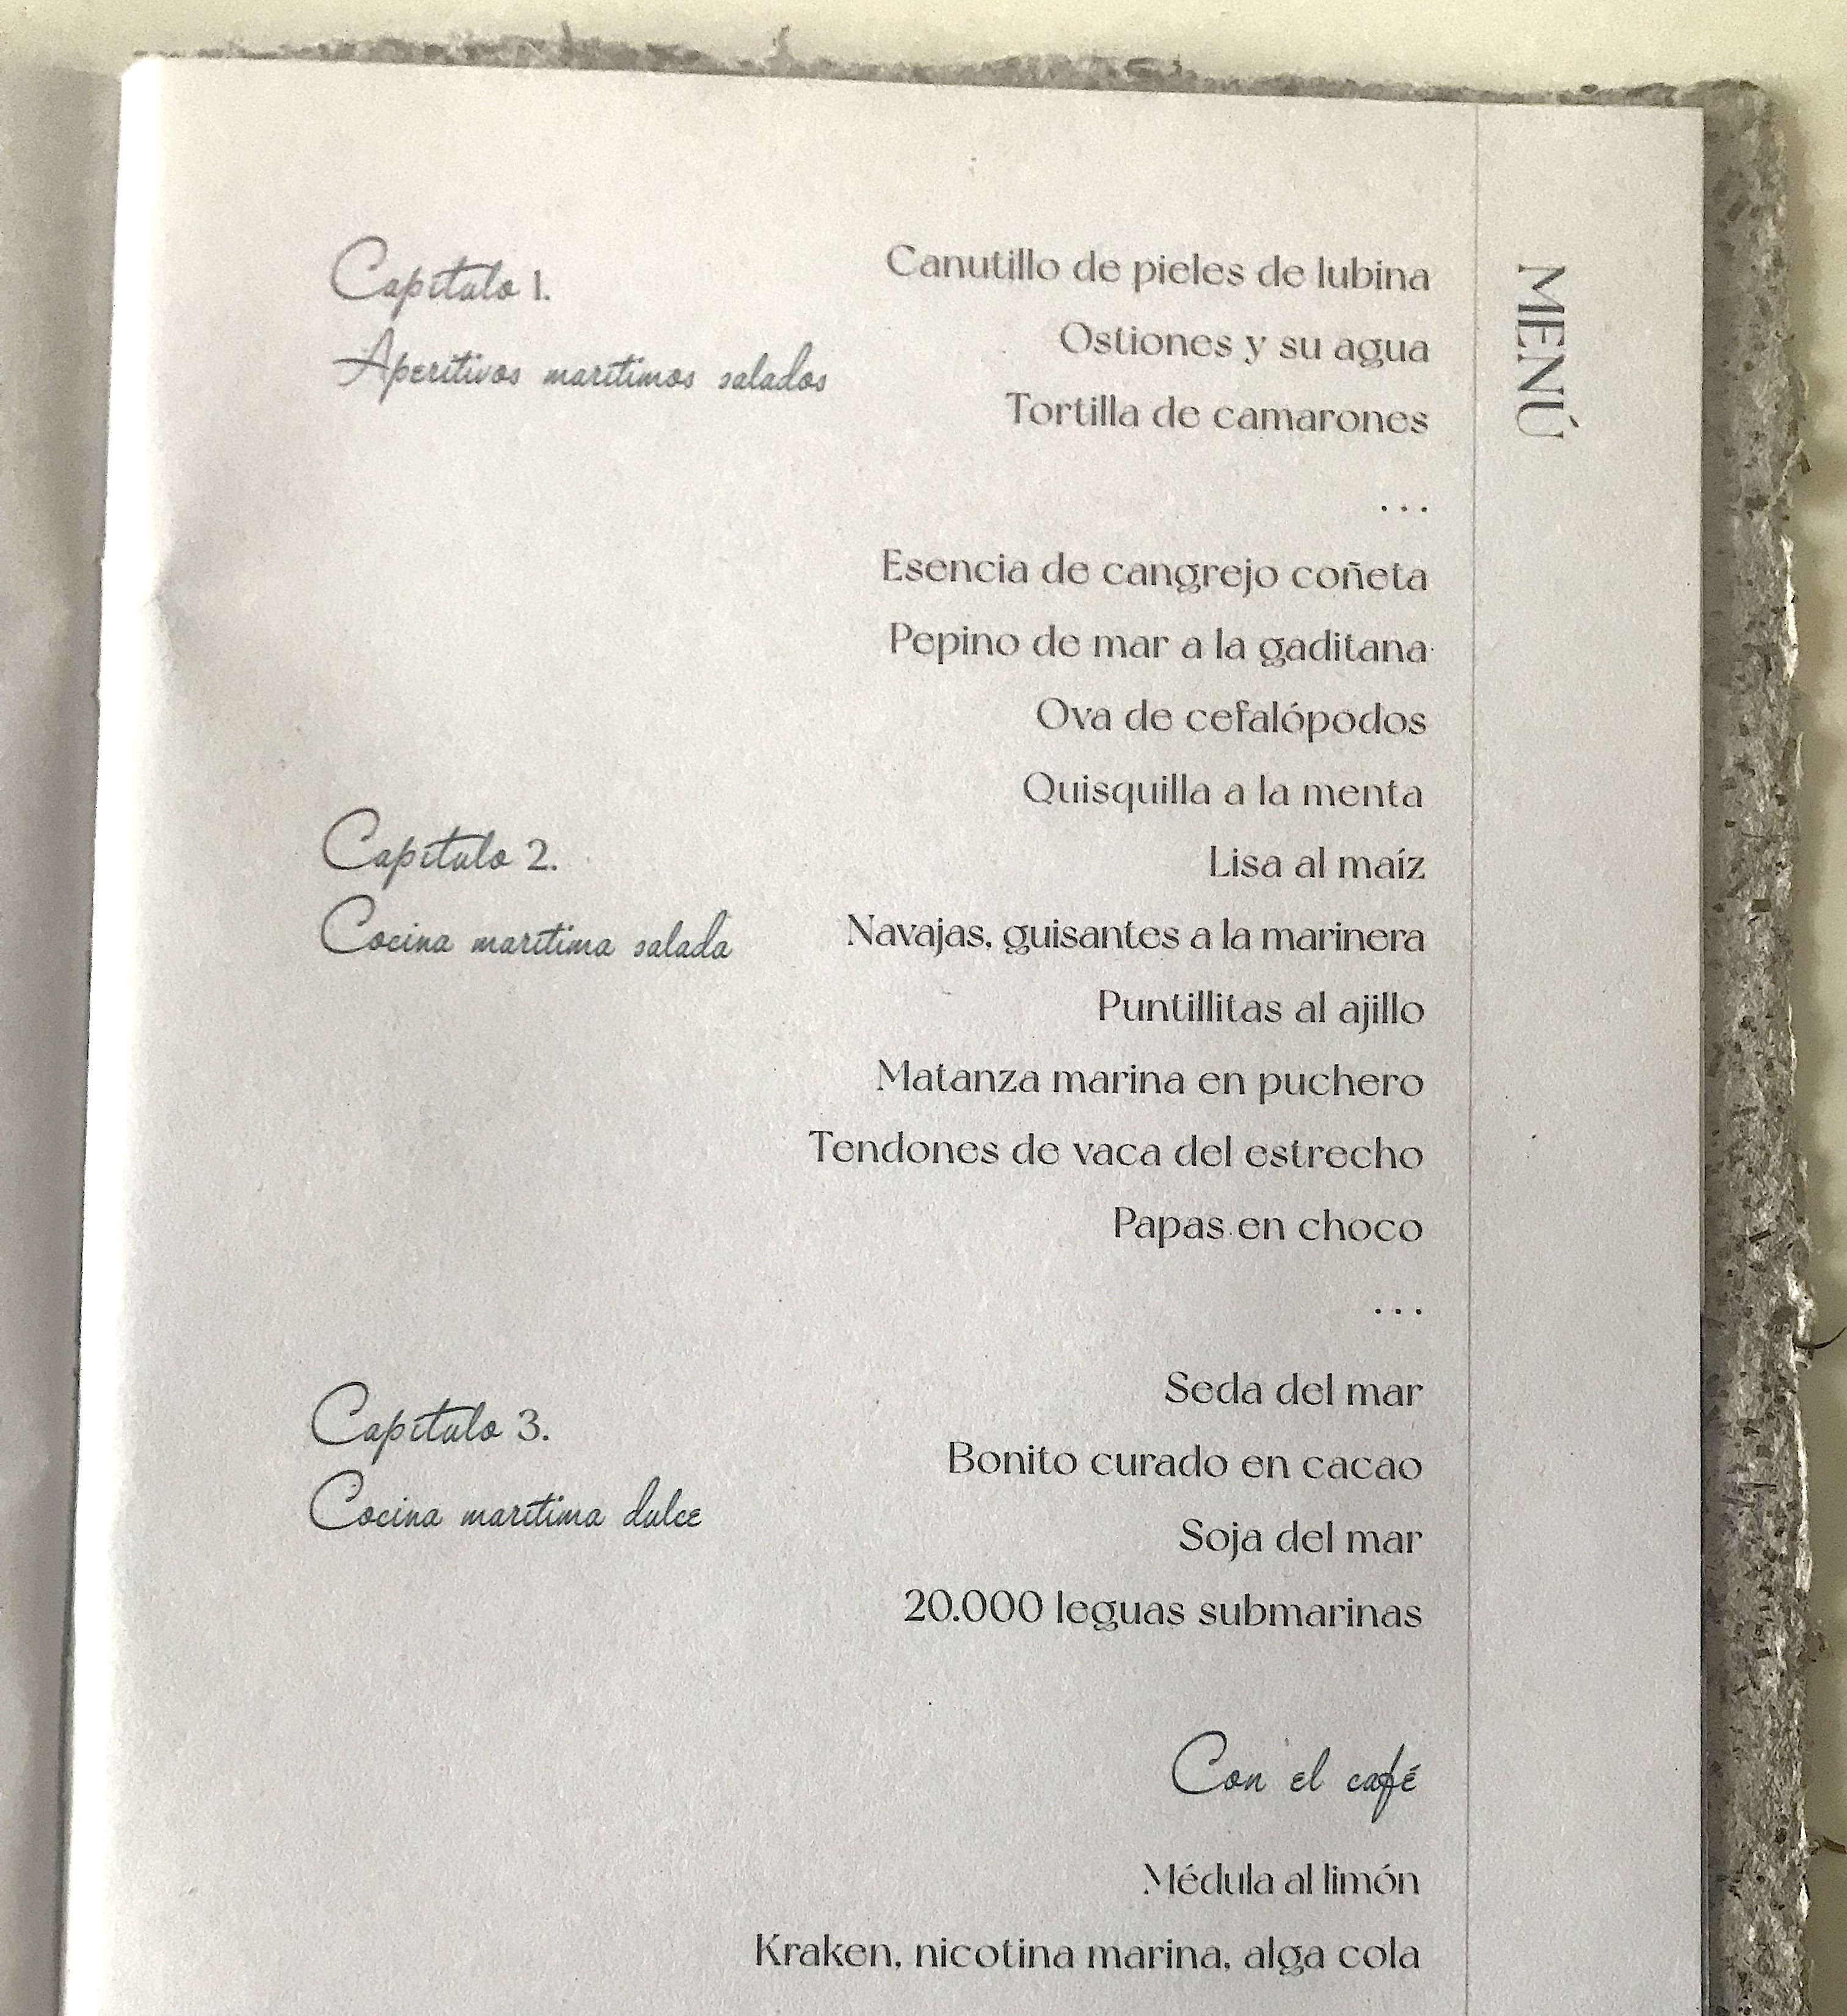 MENÚ
Capítulo 1.
Aperitivos marítimos salados
Canutillo de pieles de lubina
Ostiones y su agua
Tortilla de camarones
...
Capítulo 2.
Cocina marítima salada
Esencia de cangrejo coñeta
Pepino de mar a la gaditana
Ova de cefalópodos
Quisquilla a la menta
Lisa al maíz
Navajas, guisantes a la marinera
Puntillitas al ajillo
Matanza marina en puchero
Tendones de vaca del estrecho
Papas en choco
...
Capítulo 3.
Cocina marítima dulce
Seda del mar
Bonito curado en cacao
Soja del mar
20.000 leguas submarinas
Con el café
Médula al limón
Kraken, nicotina marina, alga cola